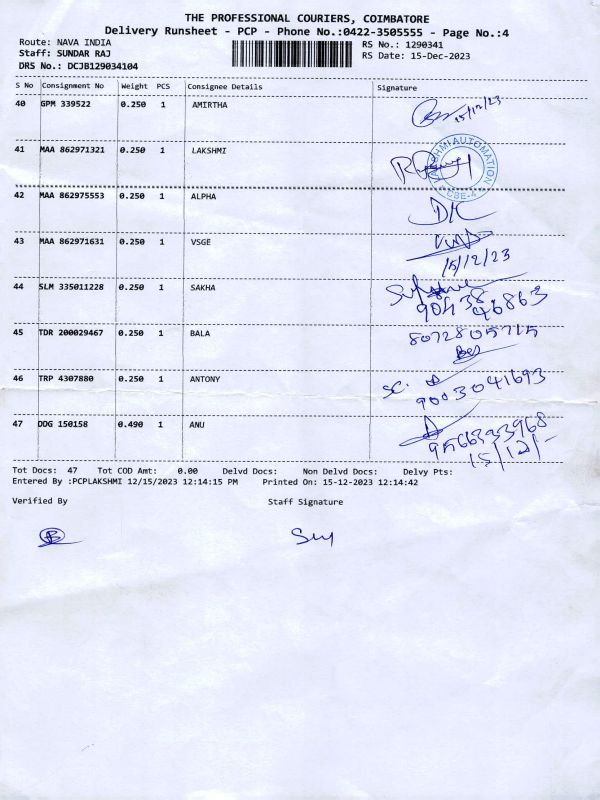 THE PROFESSIONAL COURIERS, COIMBATORE
Delivery Runsheet - PCP - Phone No.:0422-3505555 - Page No.:4
Route: NAVA INDIA RS No.: 1290341
Staff: SUNDAR RAJ RS Date: 15-Dec-2023
DRS No.: DCJB129034104
S No Consignment No Weight PCS Consignee Details Signature
40 GPM 339522 0.250 1 AMIRTHA 15/12/23
41 MAA 862971321 0.250 1 LAKSHMI
LAKSHMI AUTOMATION CBE-4
42 MAA 862975553 0.250 1 ALPHA
43 MAA 862971631 0.250 1 VSGE
15/12/23
44 SLM 335011228 0.250 1 SAKHA
90438 46863
45 TDR 200029467 0.250 1 BALA 8072805715
46 TRP 4307880 0.250 1 ANTONY SC.
9003041693
47 DDG 150158 0.490 1 ANU
9566333968
15/12/-
Tot Docs: 47 Tot COD Amt: 0.00 Delvd Docs: Non Delvd Docs: Delvy Pts:
Entered By :PCPLAKSHMI 12/15/2023 12:14:15 PM Printed On: 15-12-2023 12:14:42
Verified By Staff Signature